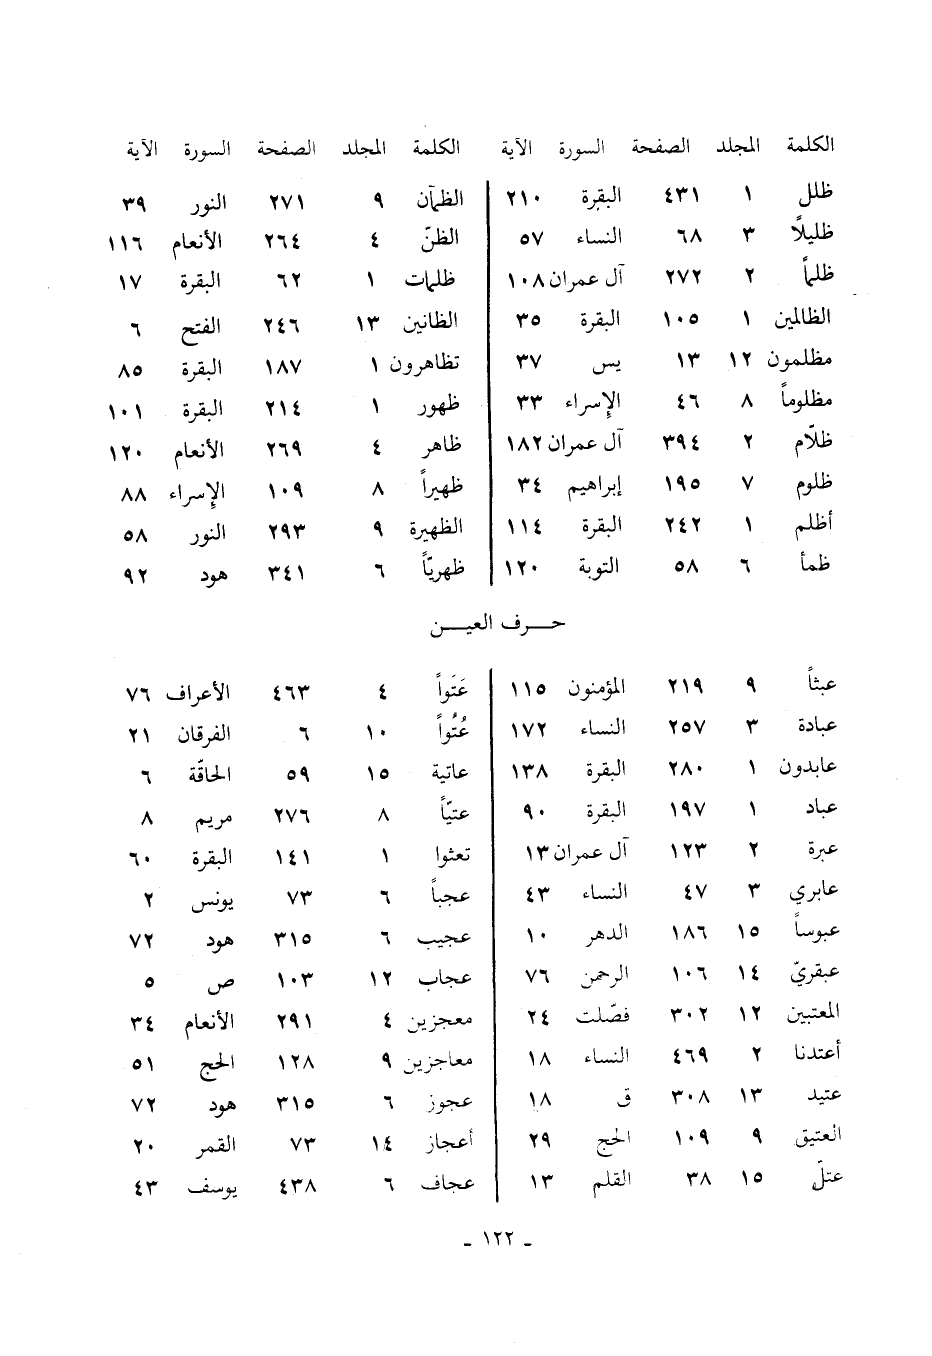 الكلمة المجلد الصفحة السورة الآية الكلمة المجلد الصفحة السورة الآية
ظلل ١ ٤٣١ البقرة ٢١٠ الظمآن ٩ ٢٧١ النور ٣٩
ظليلاً ٣ ٦٨ النساء ٥٧ الظنّ ٤ ٢٦٤ الأنعام ١١٦
ظلماً ٢ ٢٧٢ آل عمران ١٠٨ ظلمات ١ ٦٢ البقرة ١٧
الظالمين ١ ١٠٥ البقرة ٣٥ الظانين ١٣ ٢٤٦ الفتح ٦
مظلمون ١٢ ١٣ يس ٣٧ تظاهرون ١ ١٨٧ البقرة ٨٥
مظلوماً ٨ ٤٦ الإسراء ٣٣ ظهور ١ ٢١٤ البقرة ١٠١
ظلّام ٢ ٣٩٤ آل عمران ١٨٢ ظاهر ٤ ٢٦٩ الأنعام ١٢٠
ظلوم ٧ ١٩٥ إبراهيم ٣٤ ظهيراً ٨ ١٠٩ الإسراء ٨٨
أظلم ١ ٢٤٢ البقرة ١١٤ الظهيرة ٩ ٢٩٣ النور ٥٨
ظمأ ٦ ٥٨ التوبة ١٢٠ ظهريّاً ٦ ٣٤١ هود ٩٢
حـرف العيـن
عبثاً ٩ ٢١٩ المؤمنون ١١٥ عَتَواً ٤ ٤٦٣ الأعراف ٧٦
عبادة ٣ ٢٥٧ النساء ١٧٢ عُتُواً ١٠ ٦ الفرقان ٢١
عابدون ١ ٢٨٠ البقرة ١٣٨ عاتية ١٥ ٥٩ الحاقّة ٦
عباد ١ ١٩٧ البقرة ٩٠ عتيّاً ٨ ٢٧٦ مريم ٨
عبرة ٢ ١٢٣ آل عمران ١٣ تعثوا ١ ١٤١ البقرة ٦٠
عابري ٣ ٤٧ النساء ٤٣ عجباً ٦ ٧٣ يونس ٢
عبوساً ١٥ ١٨٦ الدهر ١٠ عجيب ٦ ٣١٥ هود ٧٢
عبقريّ ١٤ ١٠٦ الرحمن ٧٦ عجاب ١٢ ١٠٣ ص ٥
المعتبين ١٢ ٣٠٢ فصّلت ٢٤ معجزين ٤ ٢٩١ الأنعام ٣٤
أعتدنا ٢ ٤٦٩ النساء ١٨ معاجزين ٩ ١٢٨ الحج ٥١
عتيد ١٣ ٣٠٨ ق ١٨ عجوز ٦ ٣١٥ هود ٧٢
العتيق ٩ ١٠٩ الحج ٢٩ أعجاز ١٤ ٧٣ القمر ٢٠
عتلّ ١٥ ٣٨ القلم ١٣ عجاف ٦ ٤٣٨ يوسف ٤٣
ـ ١٢٢ ـ